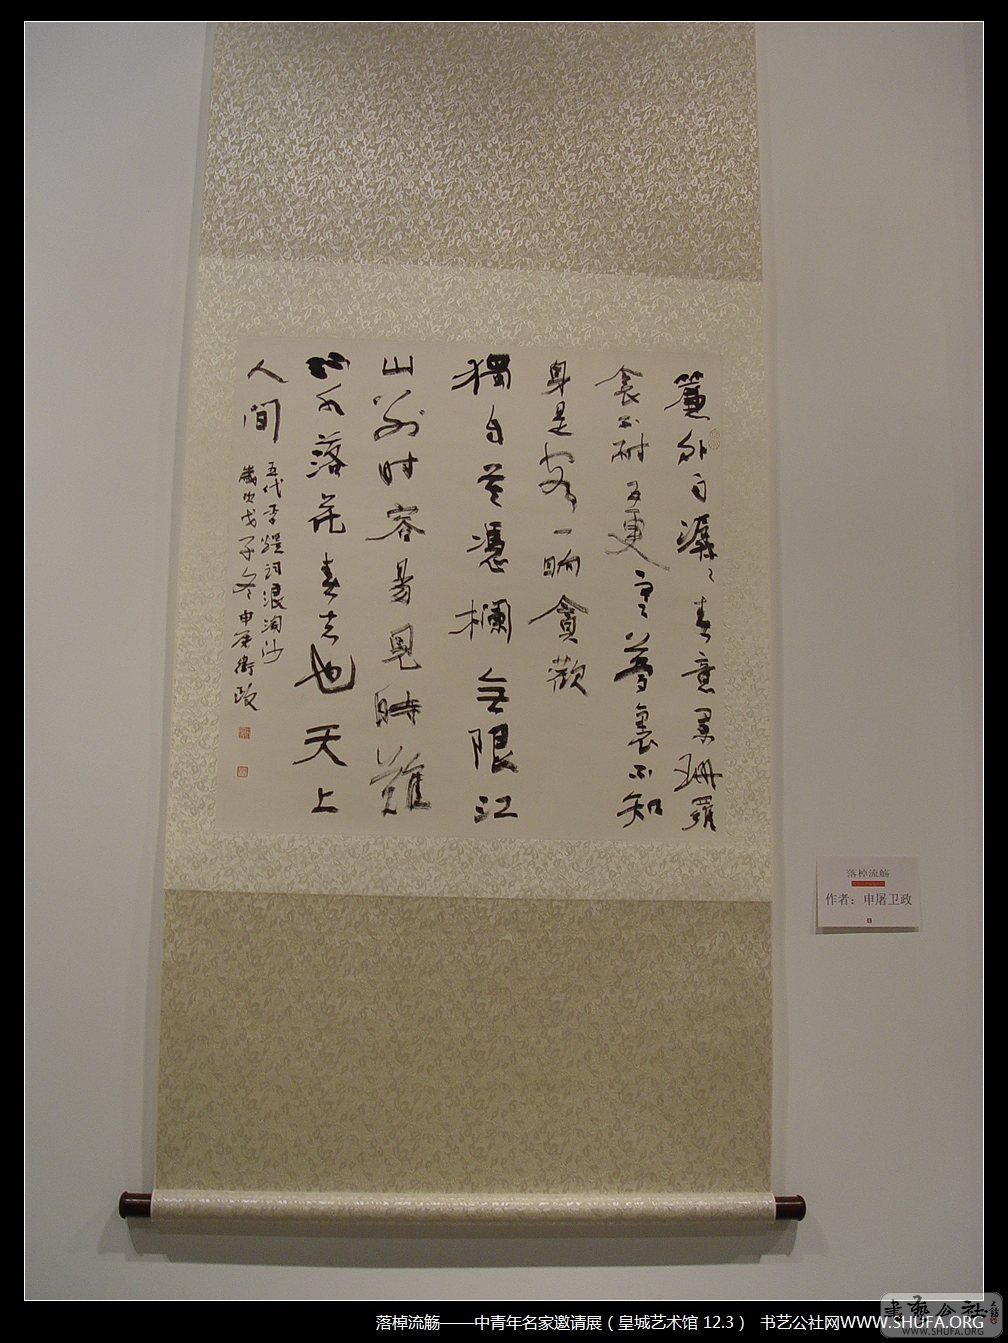 簾外雨潺〻春意闌珊羅
衾不耐五更寒夢裏不知
身是客一晌貪歡
獨自莫憑欄無限江
山别时容易見時難
流水落花春去也天上
人間
五代李煜詞浪淘沙
歲次戊子冬申屠衛政
落棹流觞
作者：申屠卫政
落棹流觞——中青年名家邀请展（皇城艺术馆 12.3） 书艺公社网WWW.SHUFA.ORG
書藝公社
WWW.SHUFA.ORG